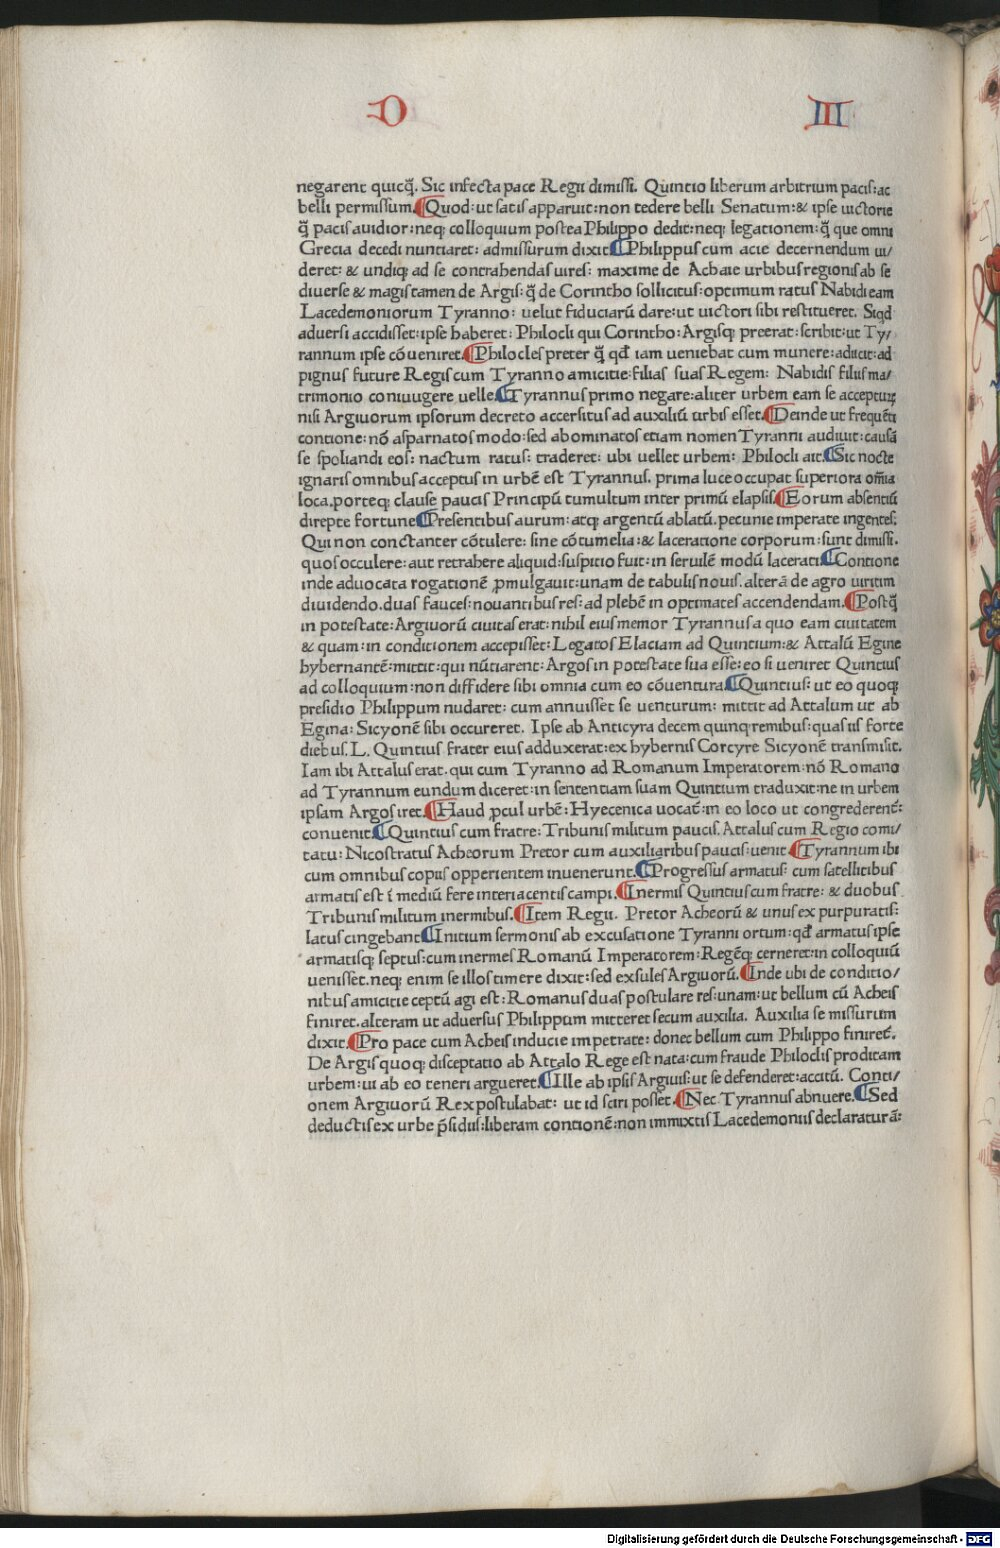 D III
negarent quicq̃. Sic infecta pace Regii dimissi. Quintio liberum arbitrium pacis: ac
belli permissum. ¶Quod: ut satis apparuit: non tedere belli Senatum: & ipse uictorie
q̃ pacis auidior: neq; colloquium postea Philippo dedit: neq; legationem: q̃ que omni
Grecia decedi nuntiaret: admissurum dixit ¶Philippus cum acie decernendum ui/
deret: & undiq; ad se contrahendas uires: maxime de Achaie urbibus regionis ab se
diuerse & magis tamen de Argis: q̃ de Corintho sollicitus: optimum ratus Nabidi eam
Lacedemoniorum Tyranno: uelut fiduciarũ dare: ut uictori sibi restitueret. Siqd
aduersi accidisset: ipse haberet: Philocli qui Corintho: Argisq; preerat: scribit: ut Ty/
rannum ipse cõueniret. ¶Philocles preter q̃ qđ iam ueniebat cum munere: adiicit: ad
pignus future Regis cum Tyranno amicitie: filias suas Regem: Nabidis filiis ma/
trimonio coniungere uelle. ¶Tyrannus primo negare: aliter urbem eam se accepturꝝ
nisi Argiuorum ipsorum decreto accersitus ad auxiliũ urbis esset. ¶Deinde ut frequẽti
contione: nõ asparnatos modo: sed abominatos etiam nomen Tyranni audiuit: causã
se spoliandi eos: nactum ratus: traderet: ubi uellet urbem: Philocli ait. ¶Sic nocte
ignaris omnibus acceptus in urbẽ est Tyrannus. prima luce occupat superiora om̃ia
loca. porteq; clause paucis Principũ tumultum inter primũ elapsis. ¶Eorum absentiũ
direpte fortune ¶Presentibus aurum: atq; argentũ ablatũ. pecunie imperate ingentes:
Qui non conctanter cõtulere: sine cõtumelia: & laceratione corporum: sunt dimissi.
quos occulere: aut retrahere aliquid: suspitio fuit: in seruilẽ modũ lacerati ¶Contione
inde aduocata rogationẽ ꝓmulgauit: unam de tabulis nouis. alterã de agro uiritim
diuidendo. duas fauces: nouantibus res: ad plebẽ in optimates accendendam. ¶Postq̃
in potestate: Argiuorũ ciuitas erat: nihil eius memor Tyrannus a quo eam ciuitatem
& quam: in conditionem accepisset: Legatos Elaciam ad Quintium: & Attalũ Egine
hybernantẽ: mittit: qui nũtiarent: Argos in potestate sua esse: eo si ueniret Quintius
ad colloquium: non diffidere sibi omnia cum eo cõuentura. ¶Quintius: ut eo quoq;
presidio Philippum nudaret: cum annuisset se uenturum: mittit ad Attalum ut ab
Egina: Sicyonẽ sibi occureret. Ipse ab Anticyra decem quinq; remibus: quas iis forte
diebus. L. Quintius frater eius adduxerat: ex hybernis Corcyre Sicyonẽ transmisit.
Iam ibi Attalus erat. qui cum Tyranno ad Romanum Imperatorem: nõ Romano
ad Tyrannum eundum diceret: in sententiam suam Quintium traduxit: ne in urbem
ipsam Argos iret. ¶Haud ꝓcul urbẽ: Hyecenica uocat̃: in eo loco ut congrederent̃:
conuenit ¶Quintius cum fratre: Tribunis militum paucis. Attalus cum Regio comi/
tatu: Nicostratus Acheorum Pretor cum auxiliaribus paucis: uenit ¶Tyrannum ibi
cum omnibus copiis opperientem inuenerunt. ¶Progressus armatus: cum satellitibus
armatis est ĩ mediũ fere interiacentis campi. ¶Inermis Quintius cum fratre: & duobus
Tribunis militum inermibus. ¶Item Regii. Pretor Acheorũ & unus ex purpuratis:
latus cingebant ¶Initium sermonis ab excusatione Tyranni ortum: qđ armatus ipse
armatisq; septus: cum inermes Romanũ Imperatorem: Regẽq; cerneret: in colloquiũ
uenisset. neq; enim se illos timere dixit: sed exsules Argiuorũ. ¶Inde ubi de conditio/
nibus amicitie ceptũ agi est: Romanus duas postulare res: unam: ut bellum cũ Acheis
finiret. alteram ut aduersus Philippum mitteret secum auxilia. Auxilia se missurum
dixit. ¶Pro pace cum Acheis inducie impetrate: donec bellum cum Philippo finiret̃.
De Argis quoq; disceptatio ab Attalo Rege est nata: cum fraude Philoclis proditam
urbem: ui ab eo teneri argueret. ¶Ille ab ipsis Argiuis: ut se defenderet: accitũ. Conti/
onem Argiuorũ Rex postulabat: ut id sciri posset. ¶Nec Tyrannus abnuere. ¶Sed
deductis ex urbe p̃sidiis: liberam contionẽ: non immixtis Lacedemoniis declaraturã:
Digitalisierung gefördert durch die Deutsche Forschungsgemeinschaft - DFG